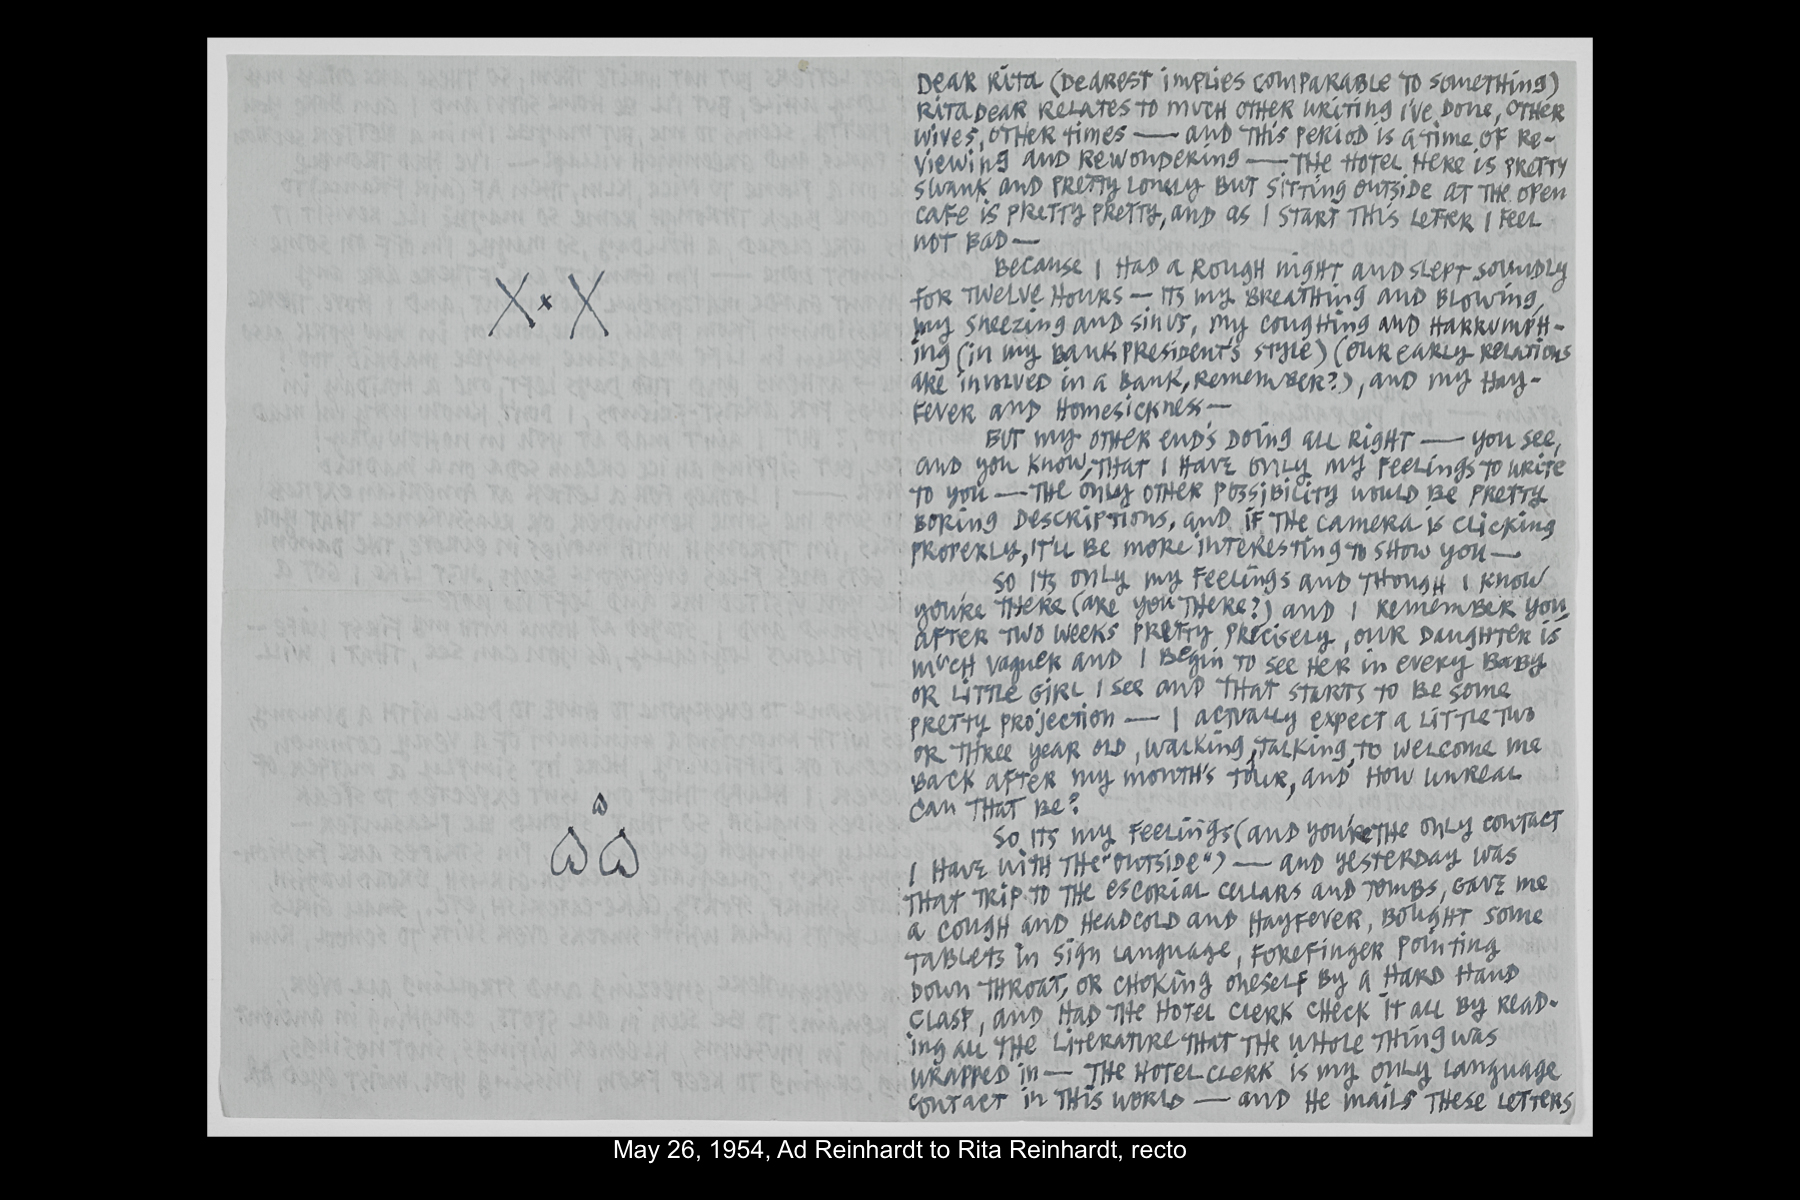 X x X
DEAR RITA (DEAREST IMPLIES COMPARABLE TO SOMETHING)
RITA DEAR RELATES TO MUCH OTHER WRITING I'VE DONE, OTHER
WIVES, OTHER TIMES — AND THIS PERIOD IS A TIME OF RE-
VIEWING AND REWONDERING — THE HOTEL HERE IS PRETTY
SWANK AND PRETTY LONELY BUT SITTING OUTSIDE AT THE OPEN
CAFE IS PRETTY PRETTY, AND AS I START THIS LETTER I FEEL
NOT BAD —
BECAUSE I HAD A ROUGH NIGHT AND SLEPT SOUNDLY
FOR TWELVE HOURS — ITS MY BREATHING AND BLOWING,
MY SNEEZING AND SINUS, MY COUGHING AND HARRUMPH-
ING (IN MY BANK PRESIDENT'S STYLE) (OUR EARLY RELATIONS
ARE INVOLVED IN A BANK, REMEMBER?), AND MY HAY-
FEVER AND HOMESICKNESS —
BUT MY OTHER END'S DOING ALL RIGHT — YOU SEE,
AND YOU KNOW, THAT I HAVE ONLY MY FEELINGS TO WRITE
TO YOU — THE ONLY OTHER POSSIBILITY WOULD BE PRETTY
BORING DESCRIPTIONS, AND IF THE CAMERA IS CLICKING
PROPERLY, IT'LL BE MORE INTERESTING TO SHOW YOU —
SO ITS ONLY MY FEELINGS AND THOUGH I KNOW
YOU'RE THERE (ARE YOU THERE?) AND I REMEMBER YOU,
AFTER TWO WEEKS PRETTY PRECISELY, OUR DAUGHTER IS
MUCH VAGUER AND I BEGIN TO SEE HER IN EVERY BABY
OR LITTLE GIRL I SEE AND THAT STARTS TO BE SOME
PRETTY PROJECTION — I ACTUALLY EXPECT A LITTLE TWO
OR THREE YEAR OLD, WALKING, TALKING, TO WELCOME ME
BACK AFTER MY MONTH'S TOUR, AND HOW UNREAL
CAN THAT BE?
SO ITS MY FEELINGS (AND YOU'RE THE ONLY CONTACT
I HAVE WITH THE "OUTSIDE") — AND YESTERDAY WAS
THAT TRIP TO THE ESCORIAL CELLARS AND TOMBS, GAVE ME
A COUGH AND HEADCOLD AND HAYFEVER, BOUGHT SOME
TABLETS IN SIGN LANGUAGE, FOREFINGER POINTING
DOWN THROAT, OR CHOKING ONESELF BY A HARD HAND
CLASP, AND HAD THE HOTEL CLERK CHECK IT ALL BY READ-
ING ALL THE LITERATURE THAT THE WHOLE THING WAS
WRAPPED IN — THE HOTEL CLERK IS MY ONLY LANGUAGE
CONTACT IN THIS WORLD — AND HE MAILS THESE LETTERS
May 26, 1954, Ad Reinhardt to Rita Reinhardt, recto